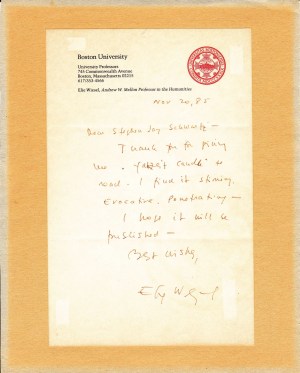 Boston University
University Professors
745 Commonwealth Avenue
Boston, Massachusetts 02215
617/353-4566
Elie Wiesel, Andrew W. Mellon Professor in the Humanities
Nov 20, 85
Dear Stephen Jay Schwartz —
Thank you for giving
me to
read. I find it strong,
Evocative, Penetrating —
I hope it will be
published —
Best wishes,
Elie Wiesel